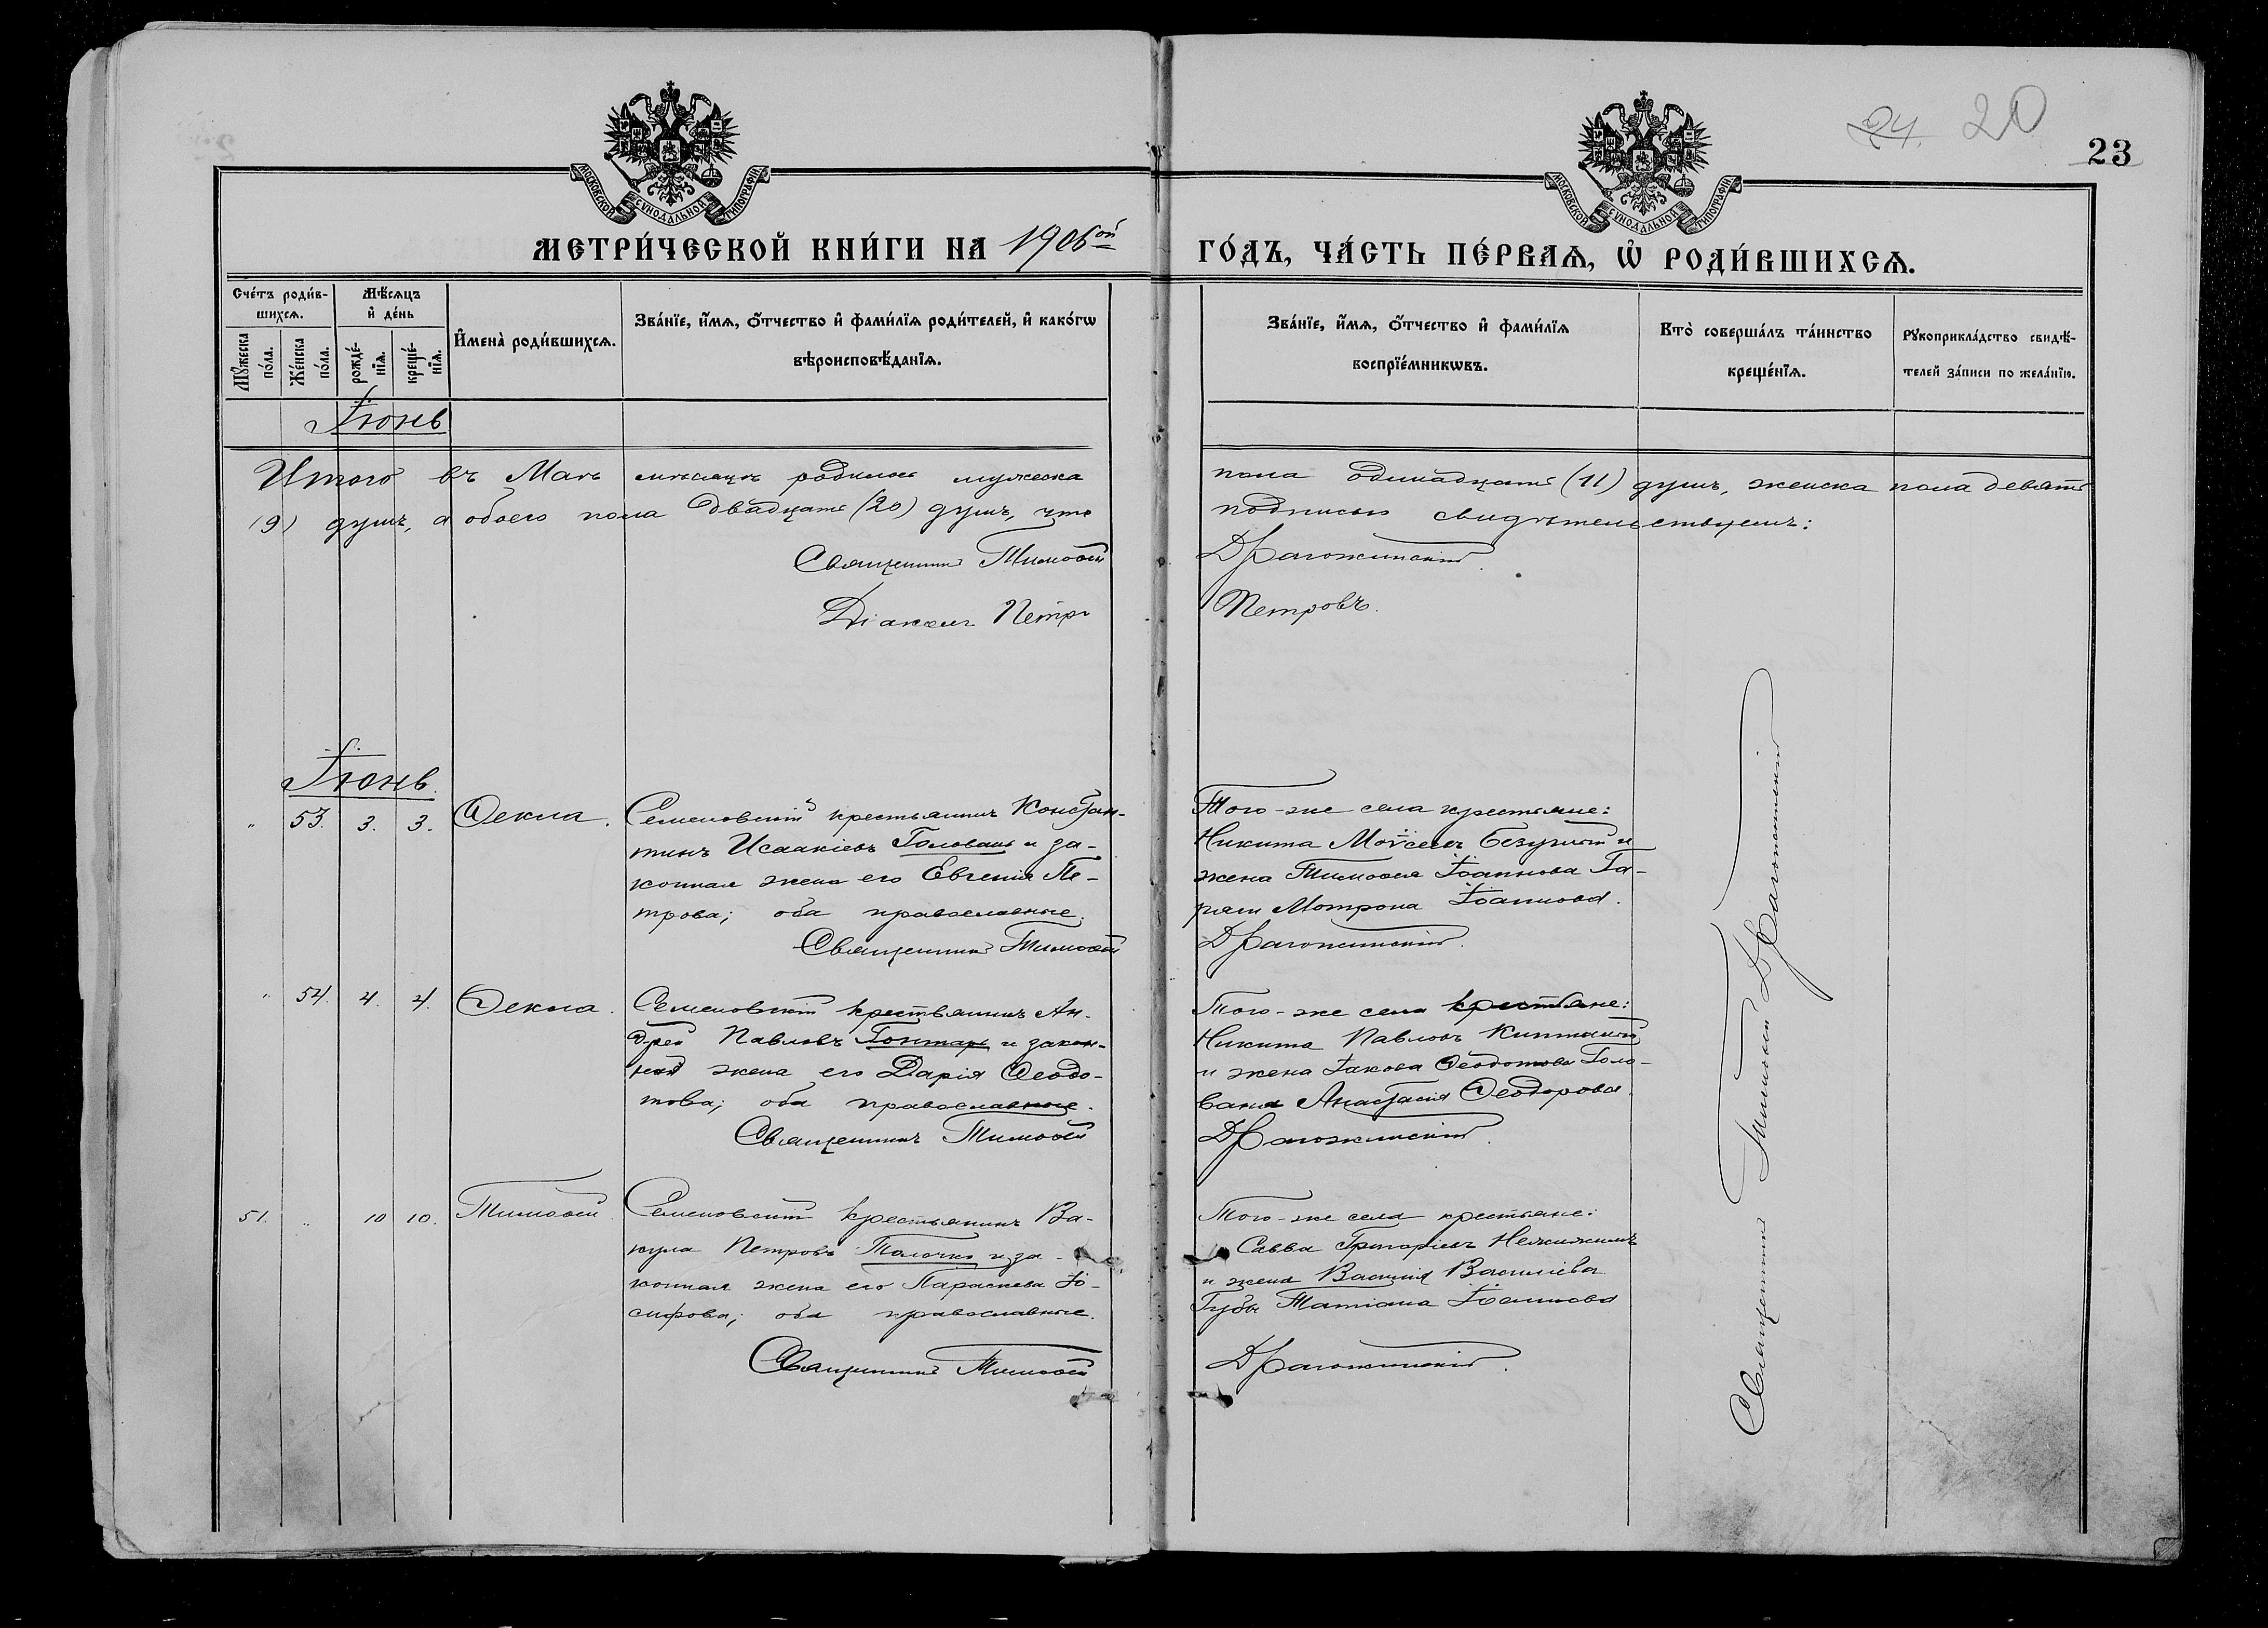 24. 20
23
МОСКОВСКОЙ СѴНОДАЛЬНОЙ ТИПОГРАФІИ
МОСКОВСКОЙ СѴНОДАЛЬНОЙ ТИПОГРАФІИ
МЕТРИ́ЧЕСКОЙ КНИ́ГИ НА 1906ой ГО́ДЪ, ЧА́СТЬ ПЕ́РВАѦ, Ѡ҆ РОДИ́ВШИХСѦ.
Сче́тъ роди́в-
шихсѧ.
Мꙋжеска по́ла.
Же́нска по́ла.
Мѣ́сѧцъ
и҆ де́нь
рожде́-
нїѧ.
креще́-
нїѧ.
И҆мена̀ роди́вшихсѧ.
Зва́нїе, и҆́мѧ, ѻ҆́тчество и҆ фами́лїѧ роди́телей, и҆ како́гѡ
вѣроисповѣ́данїѧ.
Зва́нїе, и҆́мѧ, ѻ҆́тчество и҆ фами́лїѧ
воспрїе́мникѡвъ.
Кто̀ соверша́лъ та́инство
креще́нїѧ.
Рꙋкоприкла́дство свидѣ́-
телей за́писи по жела́нїю.
Іюнь
Итого въ Маѣ мѣсяцѣ родилось мужеска пола одинадцать (11) душъ, женска пола девять
(9) душъ, а обоего пола двадцать (20) душъ, что подписью свидѣтельствуемъ:
Священникъ Тимоѳей Драгожинскій.
Діаконъ Петръ Петровъ.
Іюнь.
" 53. 3. 3. Ѳекла.
Семеновскій крестьянинъ Констан-
тинъ Исаакіевъ Головань и за-
конная жена его Евгенія Пе-
трова; оба православные.
Священникъ Тимоѳей
Того-же села крестьяне:
Никита Моѵсеевъ Безуглый и
жена Тимоѳея Іоаннова Га-
Мотрона Іоаннова.
Драгожинскій.
" 54. 4. 4. Ѳекла.
Семеновскій крестьянинъ Ан-
дрей Павловъ Гонтарь и закон-
ная жена его Дарія Ѳеодо-
това; оба православные.
Священникъ Тимоѳей
Того-же села крестьяне:
Никита Павловъ
и жена Іакова Ѳеодотова Голо-
ваня Анастасія Ѳеодорова.
Драгожинскій.
51. " 10 10. Тимоѳей.
Семеновскій крестьянинъ Ва-
кула Петровъ Толочко и за-
конная жена его Параскева Іо-
сифова; оба православные.
Священникъ Тимоѳей
Того-же села крестьяне:
Савва Григоріевъ
и жена Василія Василіева
Губы Татіана Іоаннова
Драгожинскій.
Священникъ Тимоѳей Драгожинскій